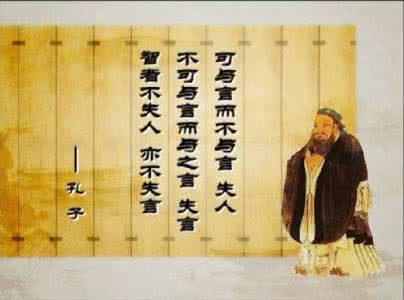 可与言而不与言 失人
不可与言而与之言 失言
智者不失人 亦不失言
——孔子